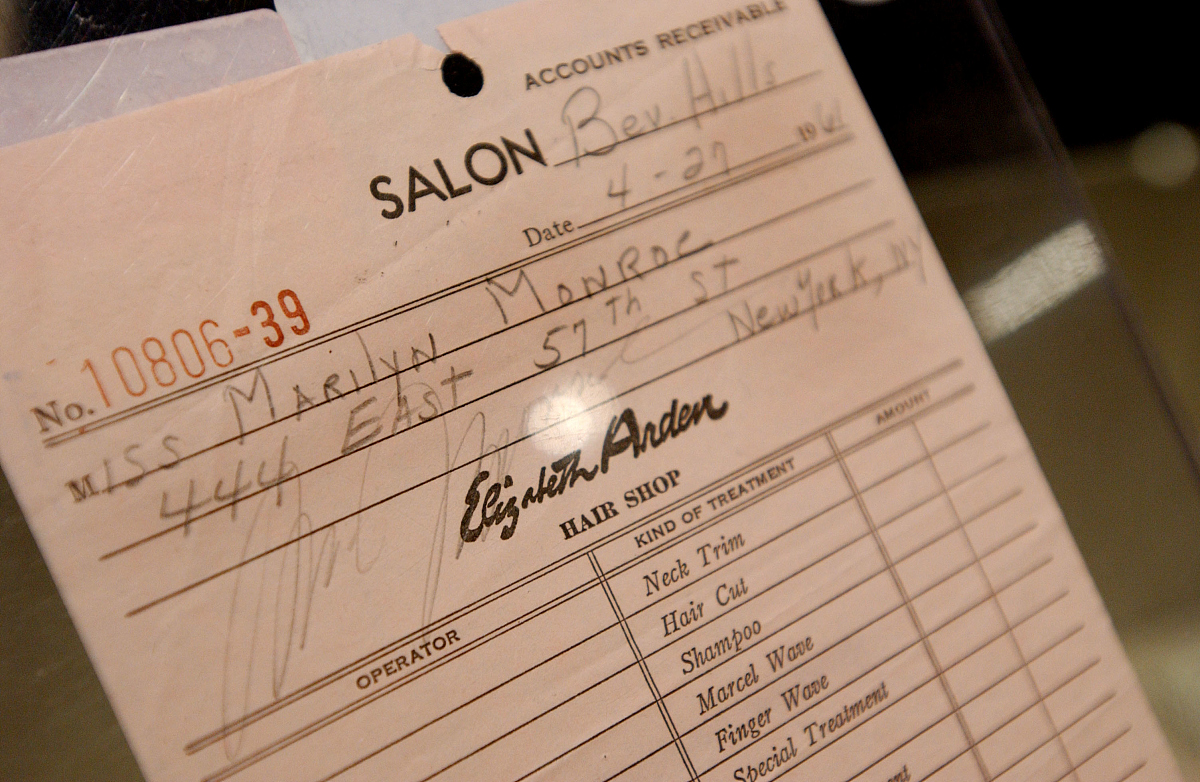 ACCOUNTS RECEIVABLE
SALON Bev. Hills
Date 4-27 1961
No. 10806-39
Miss Marilyn Monroe
444 East 57th St
New York, NY
Elizabeth Arden
HAIR SHOP
OPERATOR KIND OF TREATMENT AMOUNT
Neck Trim
Hair Cut
Shampoo
Marcel Wave
Finger Wave
Special Treatment